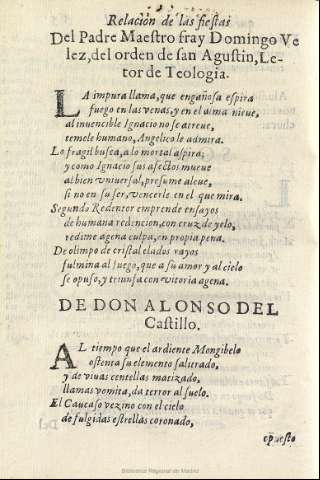 Relacion de las fiestas
Del Padre Maestro fray Domingo Ve
lez, del orden de san Agustin, Le-
tor de Teologia.
LA impura llama, que engañosa espira
fuego en las venas, y en el alma nieue,
al inuencible Ignacio no se atreue,
temele humano, Angelico le admira.
Lo fragil busca, a lo mortal aspira;
y como Ignacio sus afectos mueue
al bien vniuersal, presume aleue,
si no en su ser, vencerle en el que mira.
Segundo Redentor emprende ensayos
de humana redencion, con cruz de yelo,
redime agena culpa, en propia pena.
De olimpo de cristal elados rayos
fulmina al fuego, que a su amor y al cielo
se opuso, y triunfa con vitoria agena.
DE DON ALONSO DEL
Castillo.
AL tiempo que el ardiente Mongibelo
ostenta su elemento salitrado,
y de viuas centellas matizado,
llamas vomita, da terror al suelo.
El Caucaso vezino con el cielo
de fulgidas estrellas coronado,
Biblioteca Regional de Madrid